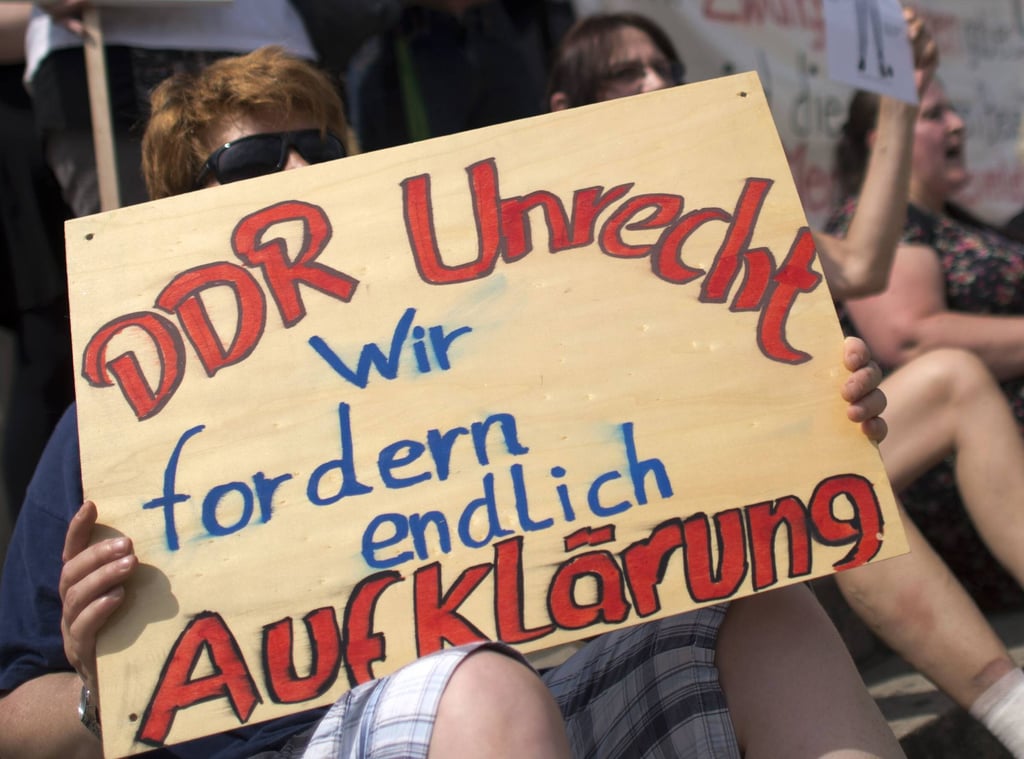 DDR Unrecht
Wir
fordern
endlich
Aufklärung
die